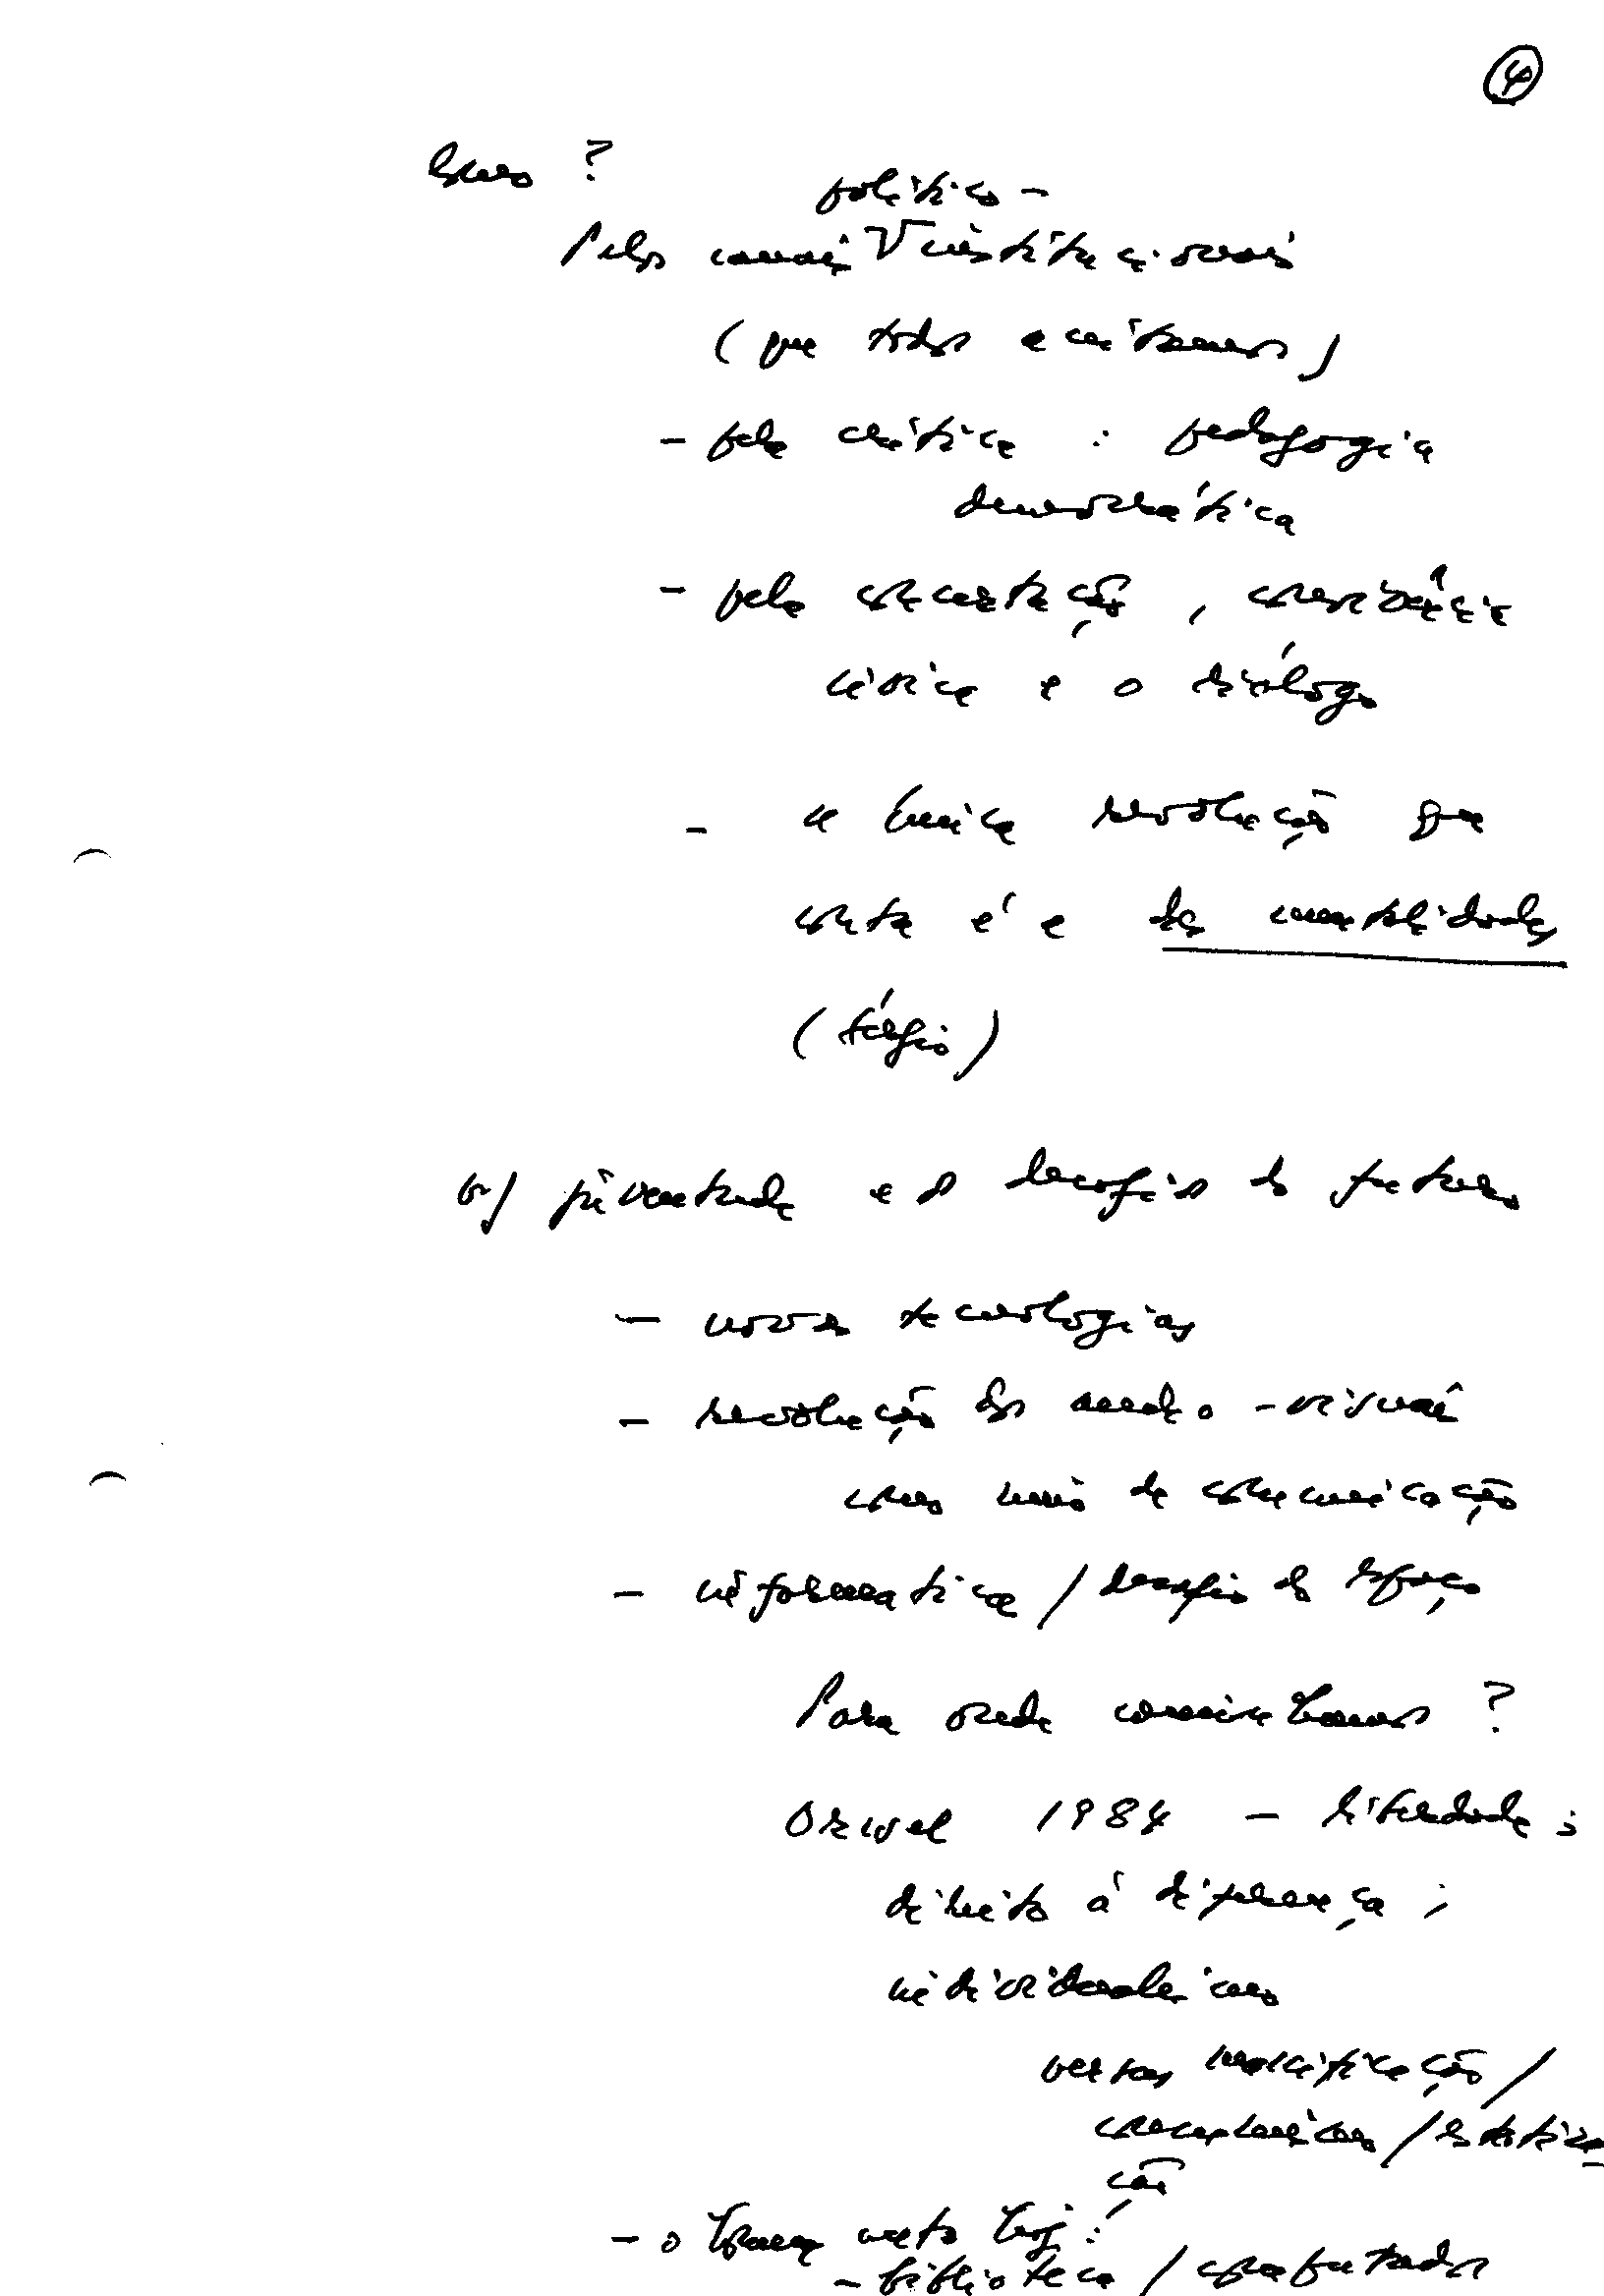 ④
Como ?
político -
Pelos canais V institucionais
(que todos aceitamos)
- pela crítica : pedagogia
democrática
- pela concertação, consciência
cívica e o diálogo
- a única revolução que
conta é a das mentalidades
(Sérgio)
b) juventude e o desafio do futuro
- novas tecnologias
- revolução dos audio-visuais
como meio de comunicação
- informática / desafio do espaço
Para onde caminhamos ?
Orwel 1984 - liberdade ;
direito à diferença ;
individualismo
versus massificação /
consumismo / estatiza-
ção
- o homem culto hoje :
- biblioteca / computador